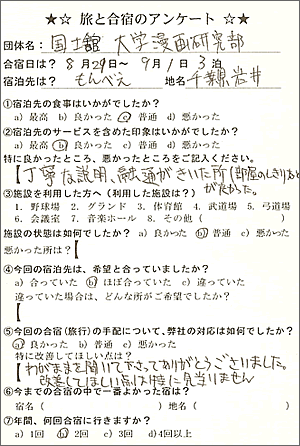 ★☆ 旅と合宿のアンケート ☆★
団体名： 国士舘 大学漫画研究部
合宿日は？ 8月29日～ 9月1日 3泊
宿泊先は？ もんべえ 地名 千葉県岩井
①宿泊先の食事はいかがでしたか？
a)最高 b)良かった c)普通 d)悪かった
②宿泊先のサービスを含めた印象はいかがでしたか？
a)最高 b)良かった c)普通 d)悪かった
特に良かったところ、悪かったところをご記入ください。
【丁寧な説明、融通がきいた所(部屋のしきりなど)
がよかった。
③施設を利用した方へ（利用した施設は？）
1. 野球場 2. グランド 3. 体育館 4. 武道場 5. 弓道場
6. 会議室 7. 音楽ホール 8. その他（ ）
施設の状態は如何でしたか？ a)良かった b)普通 c)悪かった
悪かった所は？【
④今回の宿泊先は、希望と合っていましたか？
a)合っていた b)ほぼ合っていた c)違っていた
違っていた場合は、どんな所がご希望でしたか？
【
⑤今回の合宿(旅行)の手配について、弊社の対応は如何でしたか？
a)良かった b)普通 c)悪かった
特に改善してほしい点は？
【わがままを聞いて下さってありがとうございました。
改善してほしい点は特に見当りません
⑥今までの合宿の中で一番よかった宿は？
宿名（ ）地名（ ）
⑦年間、何回合宿に行きますか？
a)1回 b)2回 c)3回 d)4回以上